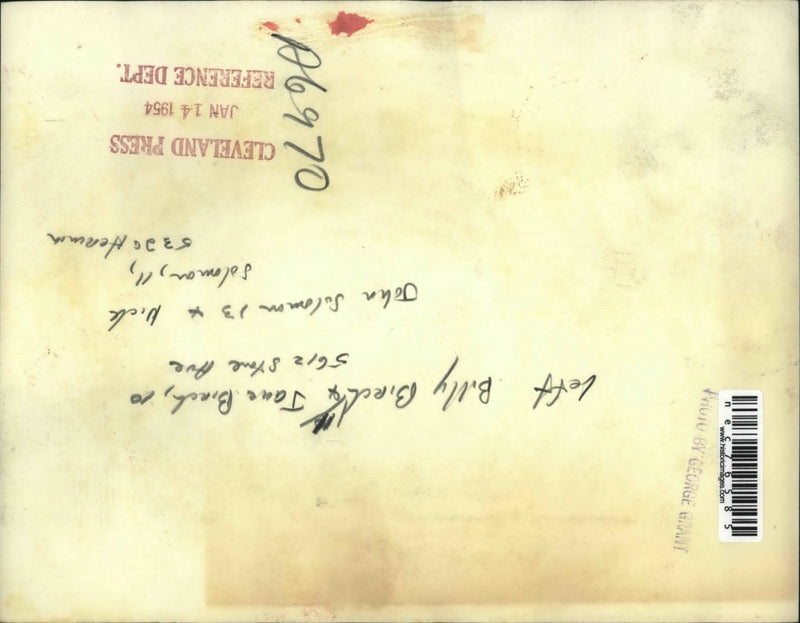 left Billy Birch 11 & Jane Birch, 10
5612 Stone Ave
John Solomon 13 & Nick
Solomon, 11,
5320 Herman
CLEVELAND PRESS
JAN 14 1954
REFERENCE DEPT.
A6970
PHOTO BY GEORGE GRANT
www.historicimages.com
nec76585